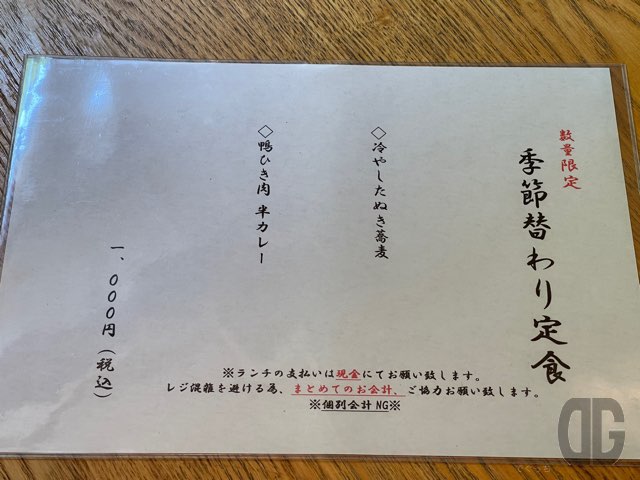 数量限定
季節替わり定食
◇冷やしたぬき蕎麦
◇鴨ひき肉 半カレー
一、〇〇〇円（税込）
※ランチの支払いは現金にてお願い致します。
レジ混雑を避ける為、まとめてのお会計、ご協力お願い致します。
※個別会計NG※
DG